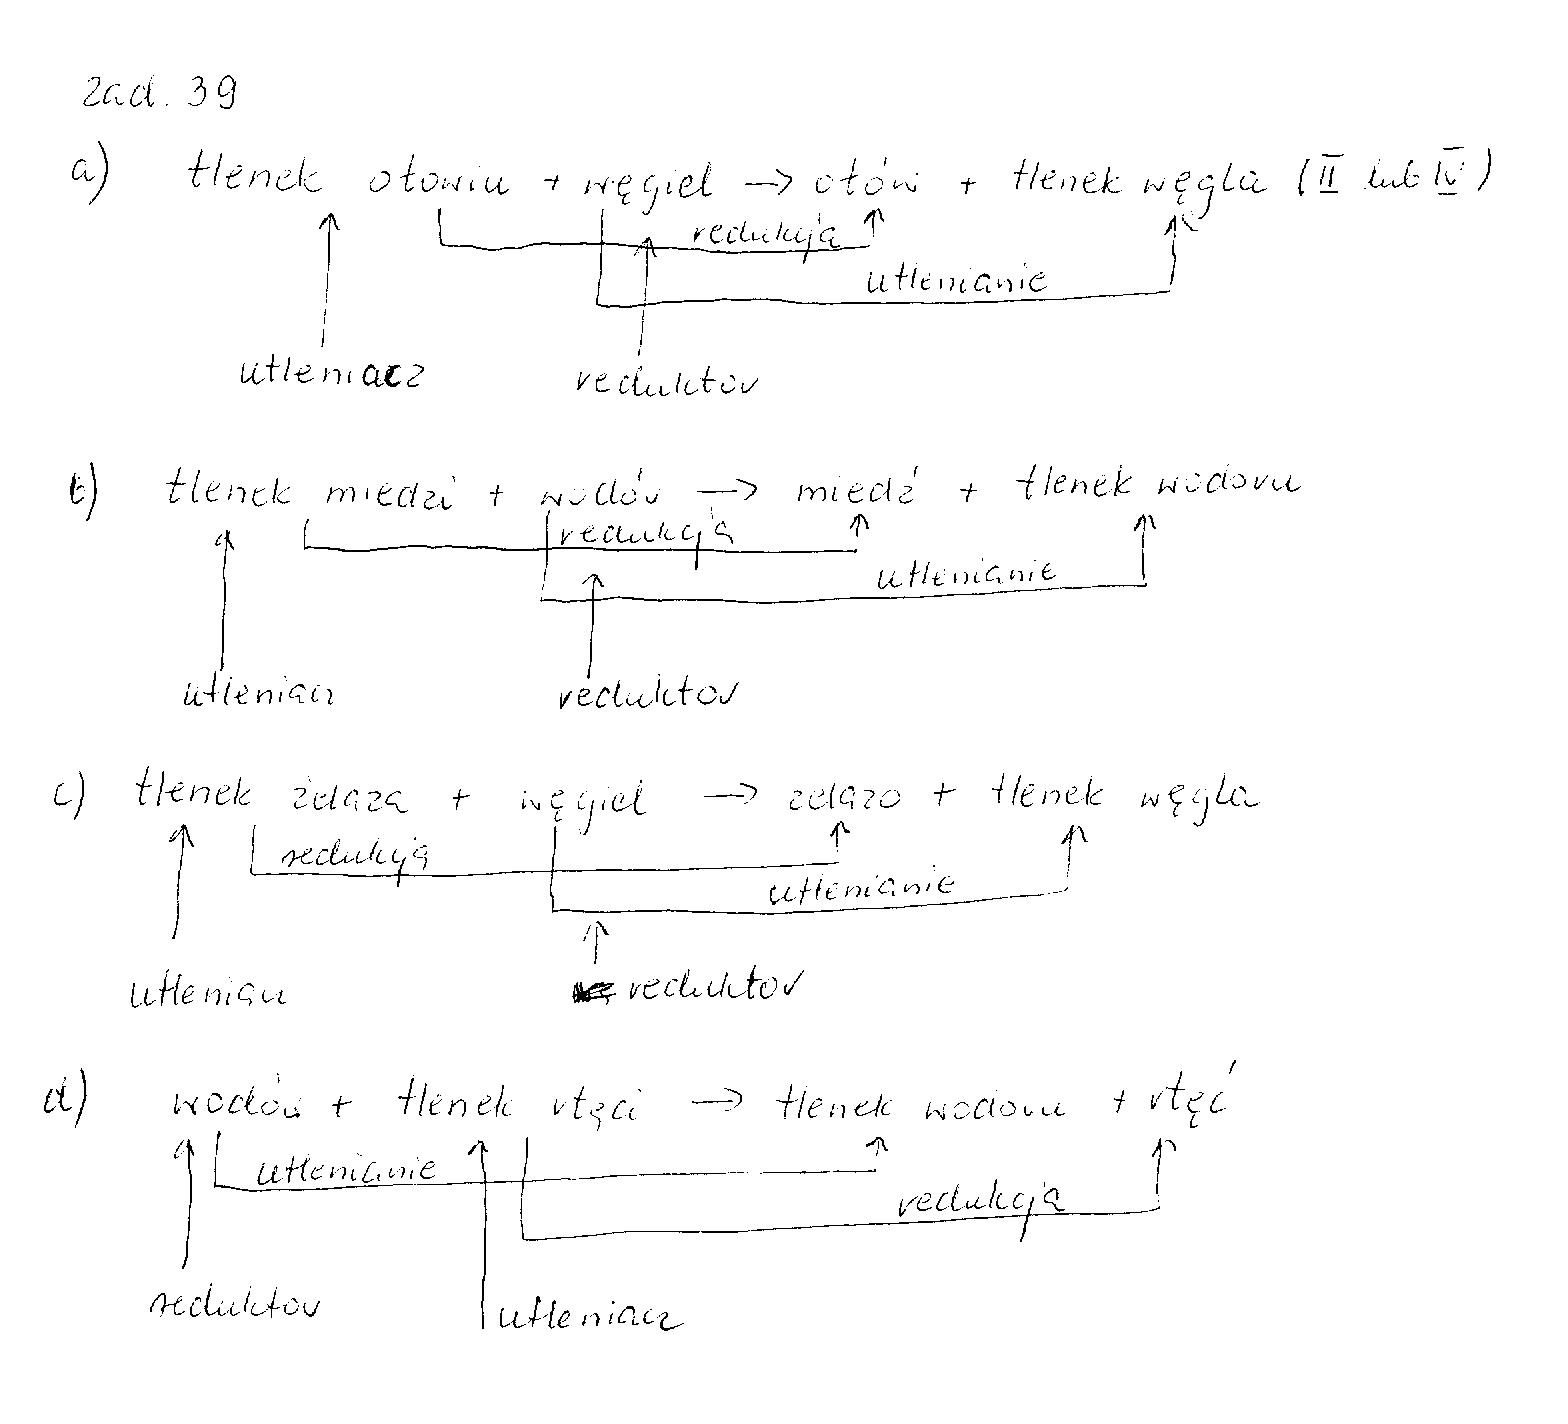 zad. 39
a) tlenek ołowiu + węgiel → ołów + tlenek węgla (II lub IV)
redukcja
utlenianie
utleniacz reduktor
b) tlenek miedzi + wodór → miedź + tlenek wodoru
redukcja
utlenianie
utleniacz reduktor
c) tlenek żelaza + węgiel → żelazo + tlenek węgla
redukcja
utlenianie
utleniacz reduktor
d) wodór + tlenek rtęci → tlenek wodoru + rtęć
utlenianie
redukcja
reduktor utleniacz